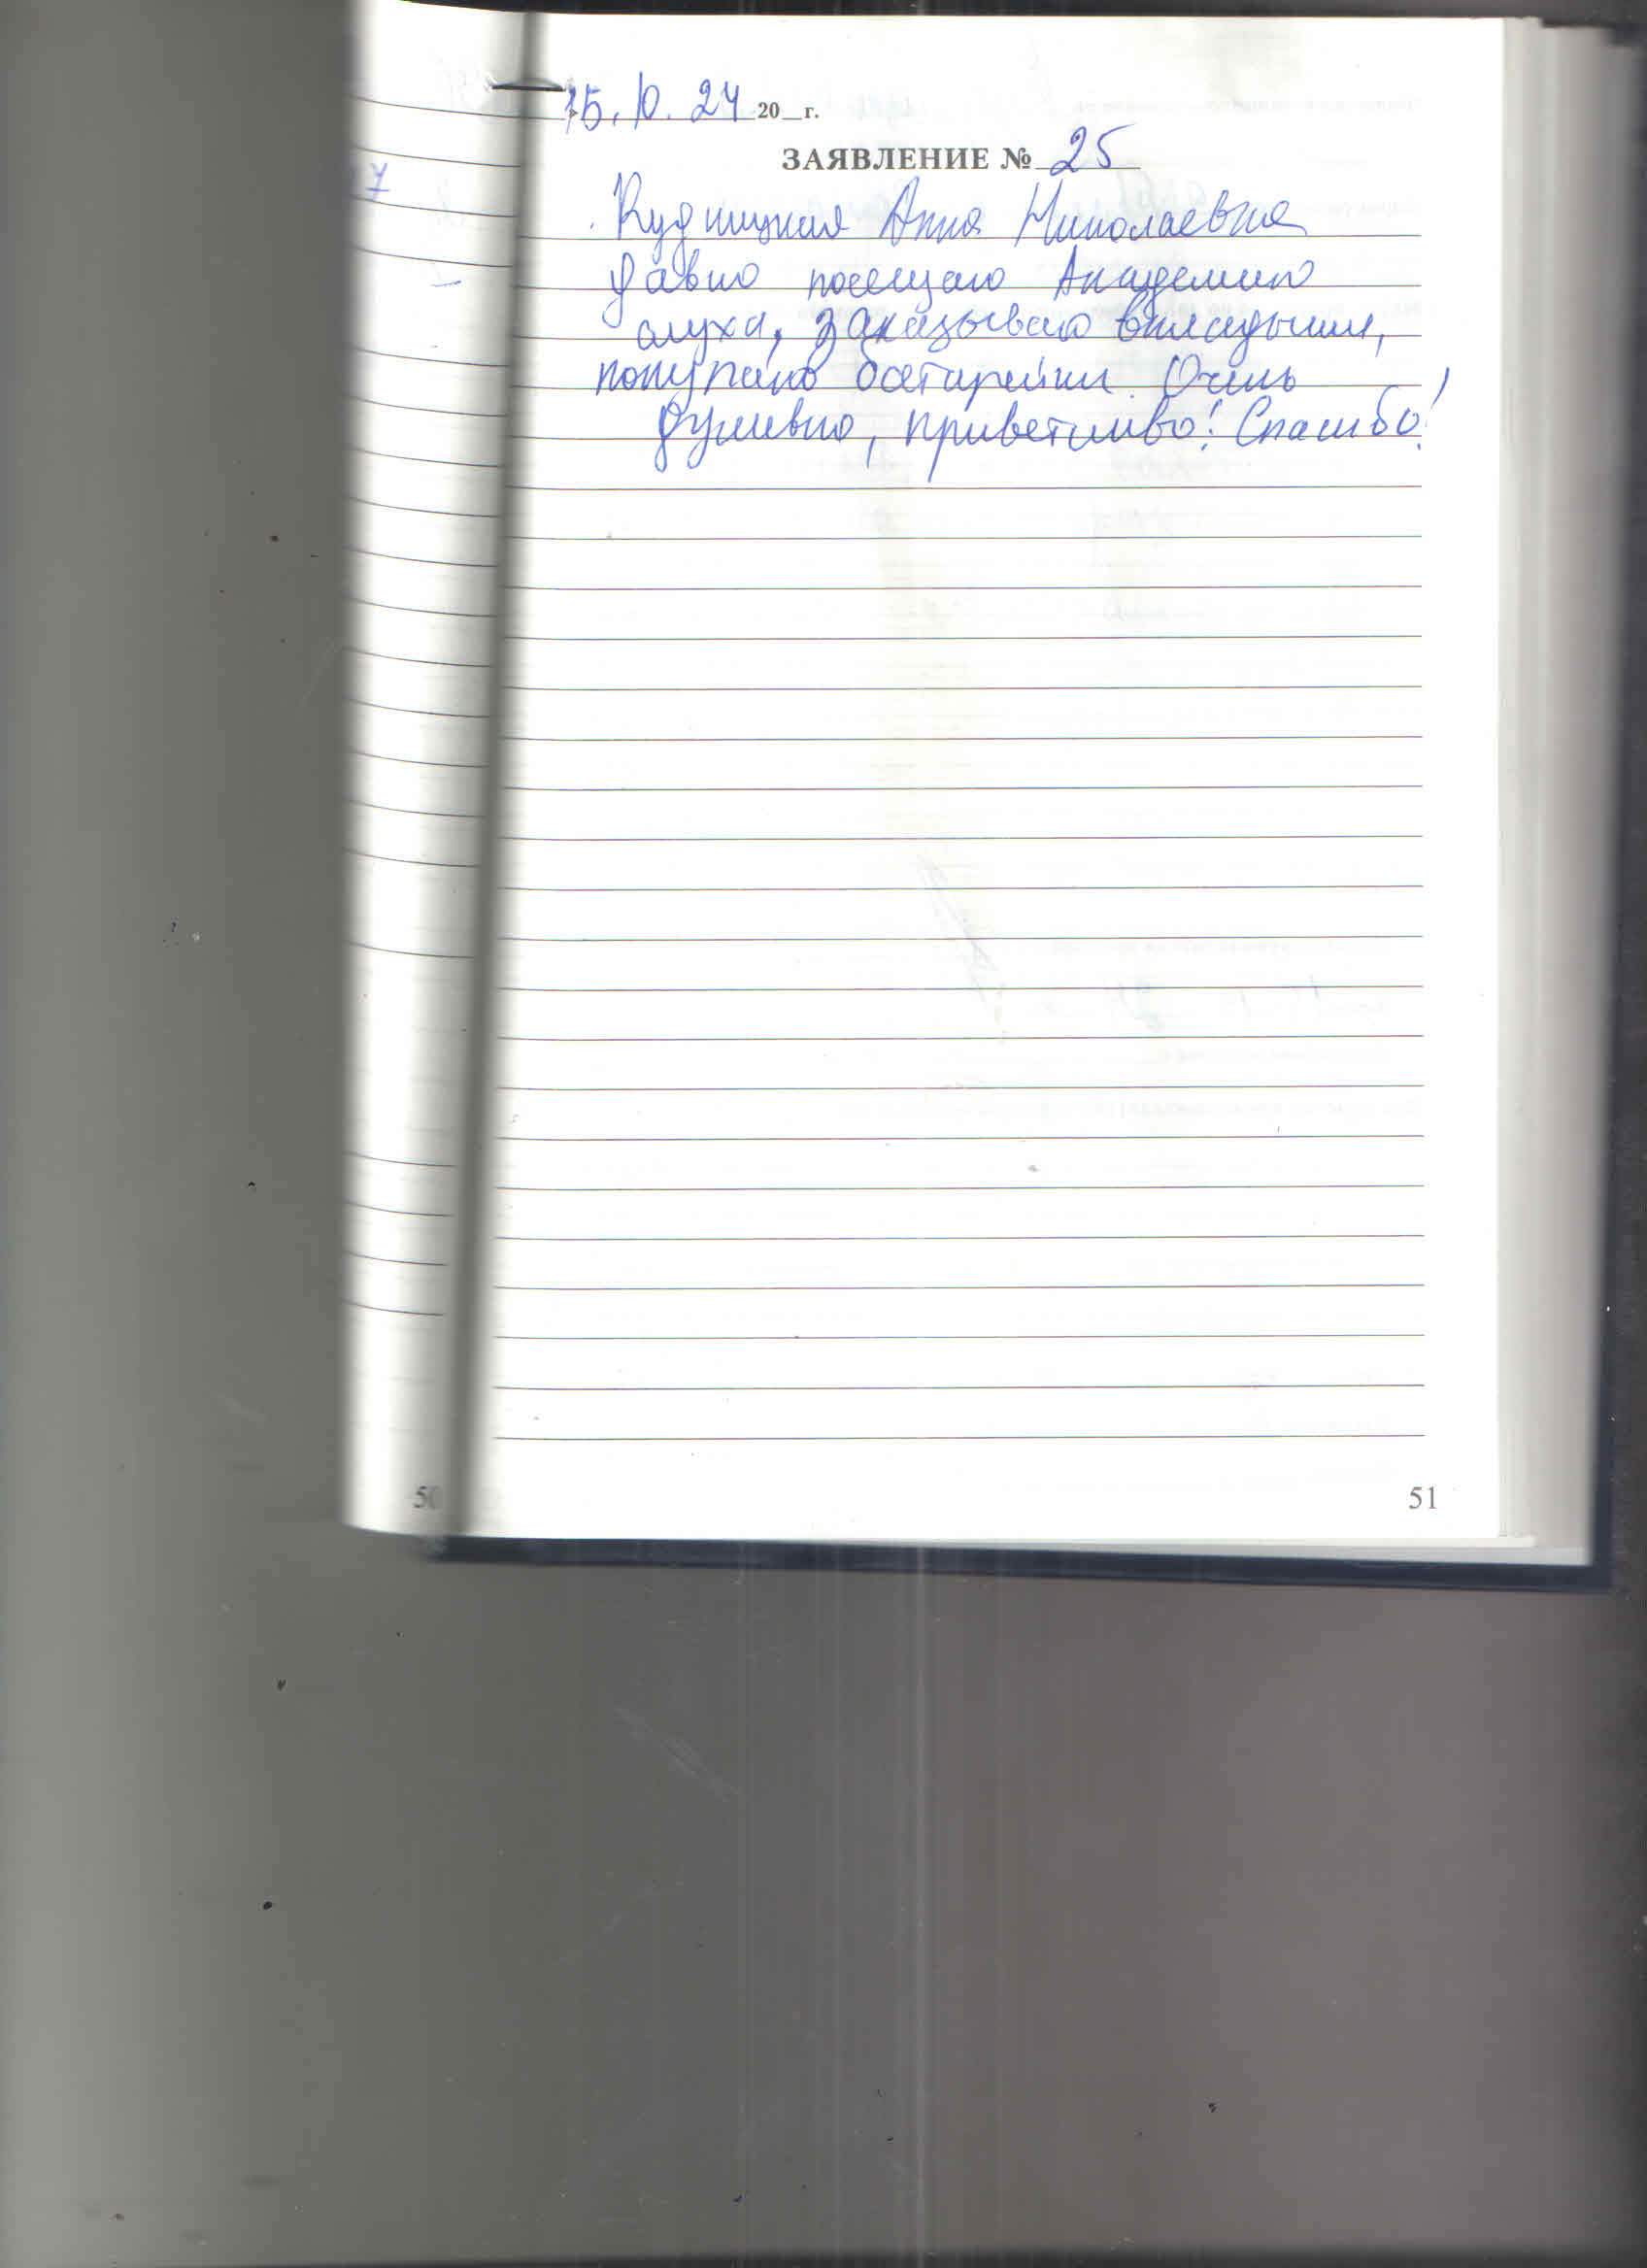 15.10.24 20_г.
ЗАЯВЛЕНИЕ № 25
Кудницкая Анна Николаевна
Давно посещаю Академию
слуха, заказываю вкладыши,
покупаю батарейки. Очень
душевно, приветливо! Спасибо!
7
50
51